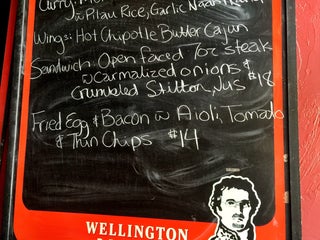 w Pilau Rice, Garlic Naan
Wings: Hot Chipotle Butter Cajun
Sandwich: Open faced 7oz steak
w carmalized onions &
Crumbled Stilton, Jus $18
Fried Egg & Bacon w Aioli, Tomato
& Thin Chips $14
WELLINGTON